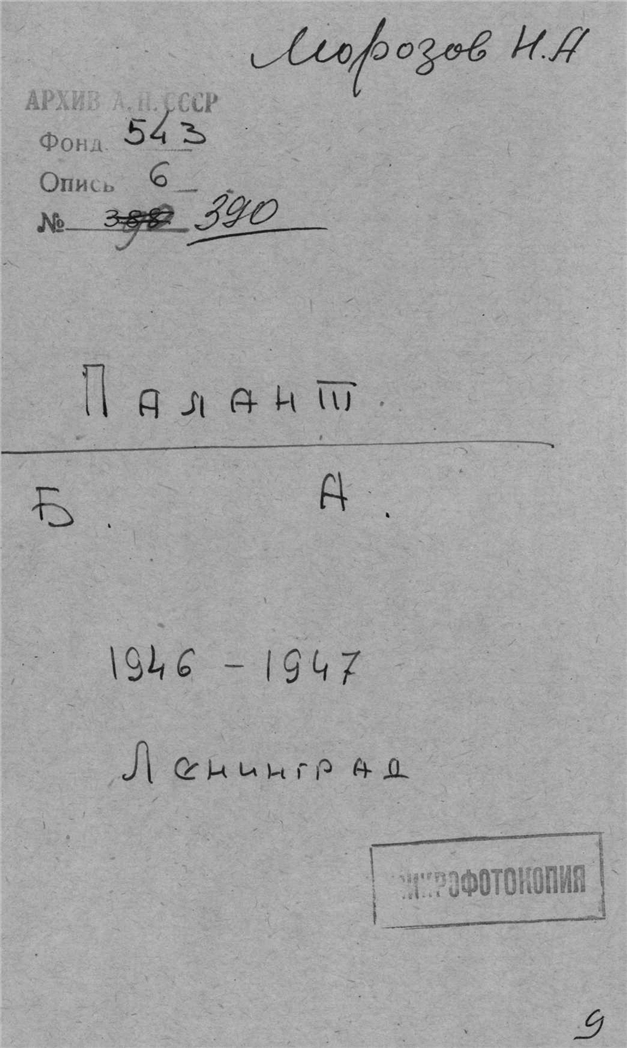 Морозов Н.А
АРХИВ А.Н.СССР
Фонд. 543
Опись 6
№ 390
Палант
Б. А.
1946 - 1947
Ленинград
МИКРОФОТОКОПИЯ
9